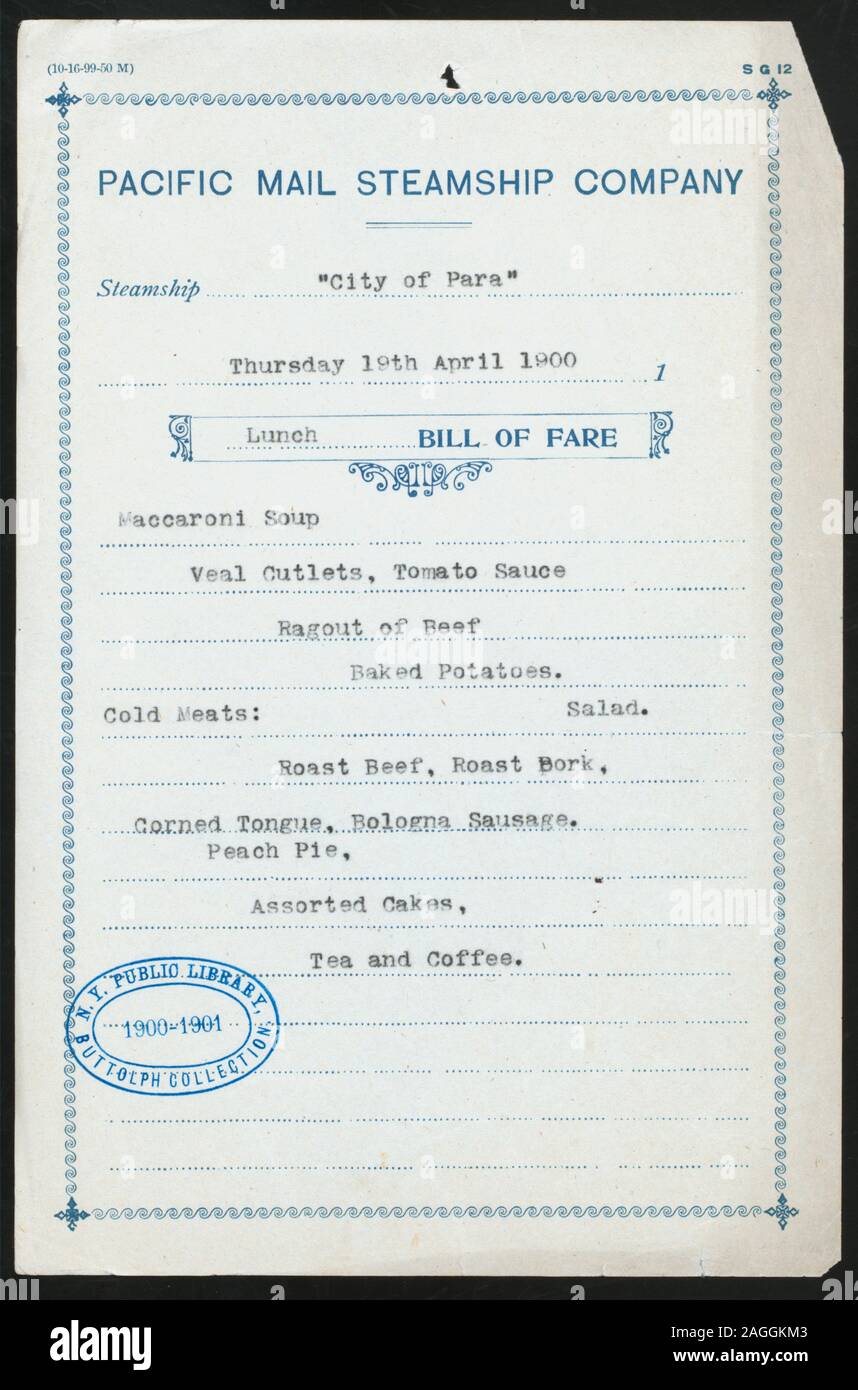 (10-16-99-50 M) S G 12
PACIFIC MAIL STEAMSHIP COMPANY
Steamship "City of Para"
Thursday 19th April 1900 1
Lunch BILL OF FARE
Maccaroni Soup
Veal Cutlets, Tomato Sauce
Ragout of Beef
Baked Potatoes.
Cold Meats: Salad.
Roast Beef, Roast Pork,
Corned Tongue, Bologna Sausage.
Peach Pie,
Assorted Cakes,
Tea and Coffee.
N. Y. PUBLIC LIBRARY,
1900-1901
BUTTOLPH COLLECTION
alamy
alamy
Image ID: 2AGGKM3
www.alamy.com